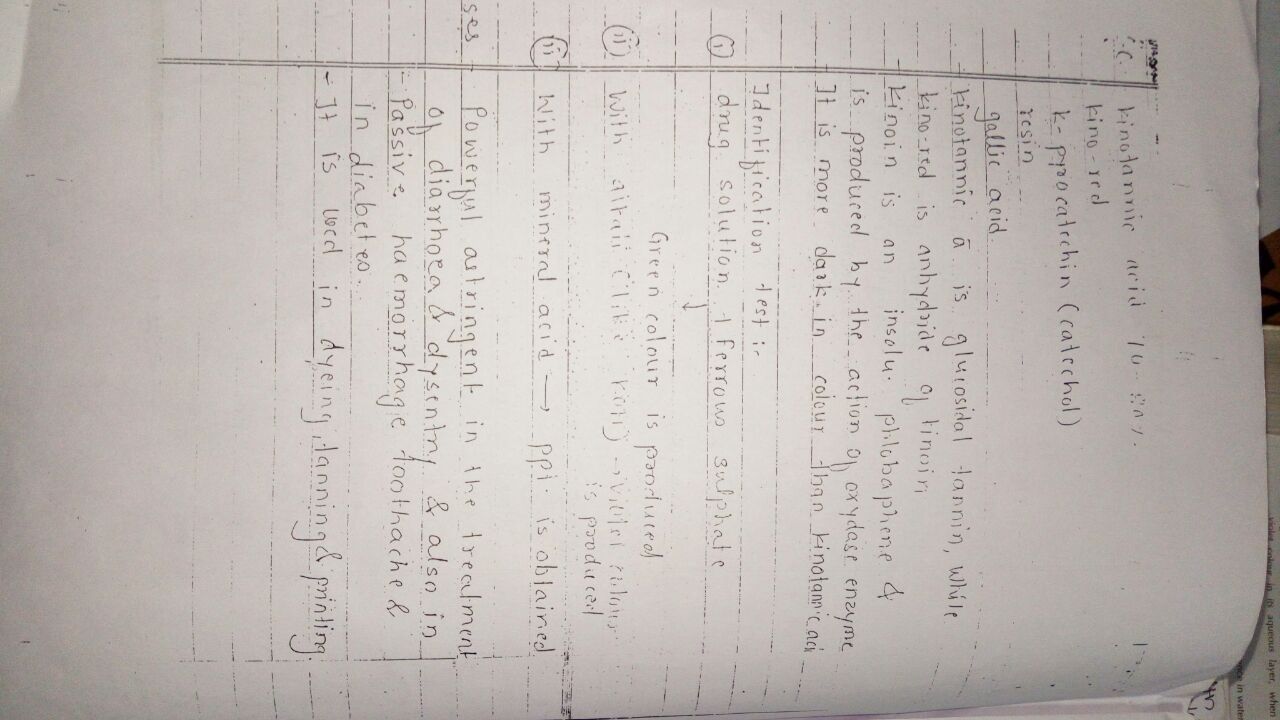 C.C.
kinotannic acid 70-80%.
kino-red
k-procatechin (catechol)
resin
gallic acid
kinotannic a is glucosidal tannin, while
kino-red is anhydride of kinoin
kinoin is an insolu. phlobaphene &
is produced by the action of oxydase enzyme
It is more dark in colour than kinotannic aci
Identification test :-
(i) drug solution + ferrous sulphate
↓
Green colour is produced
(ii) With alkali (like KOH) → Violet colour
is produced
(ii) With mineral acid → ppt. is obtained
ses - Powerful astringent in the treatment
of diarrhoea & dysentry & also in
- Passive haemorrhagic toothache &
in diabetes.
- It is used in dyeing, tanning & printing.